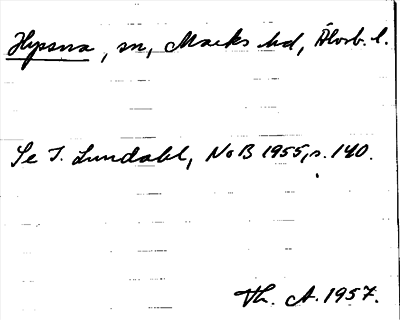 Hyssna, sn, Marks hd, Älvsb. l.
Se I. Lundahl, NoB 1955, s. 140.
Th. A. 1957.